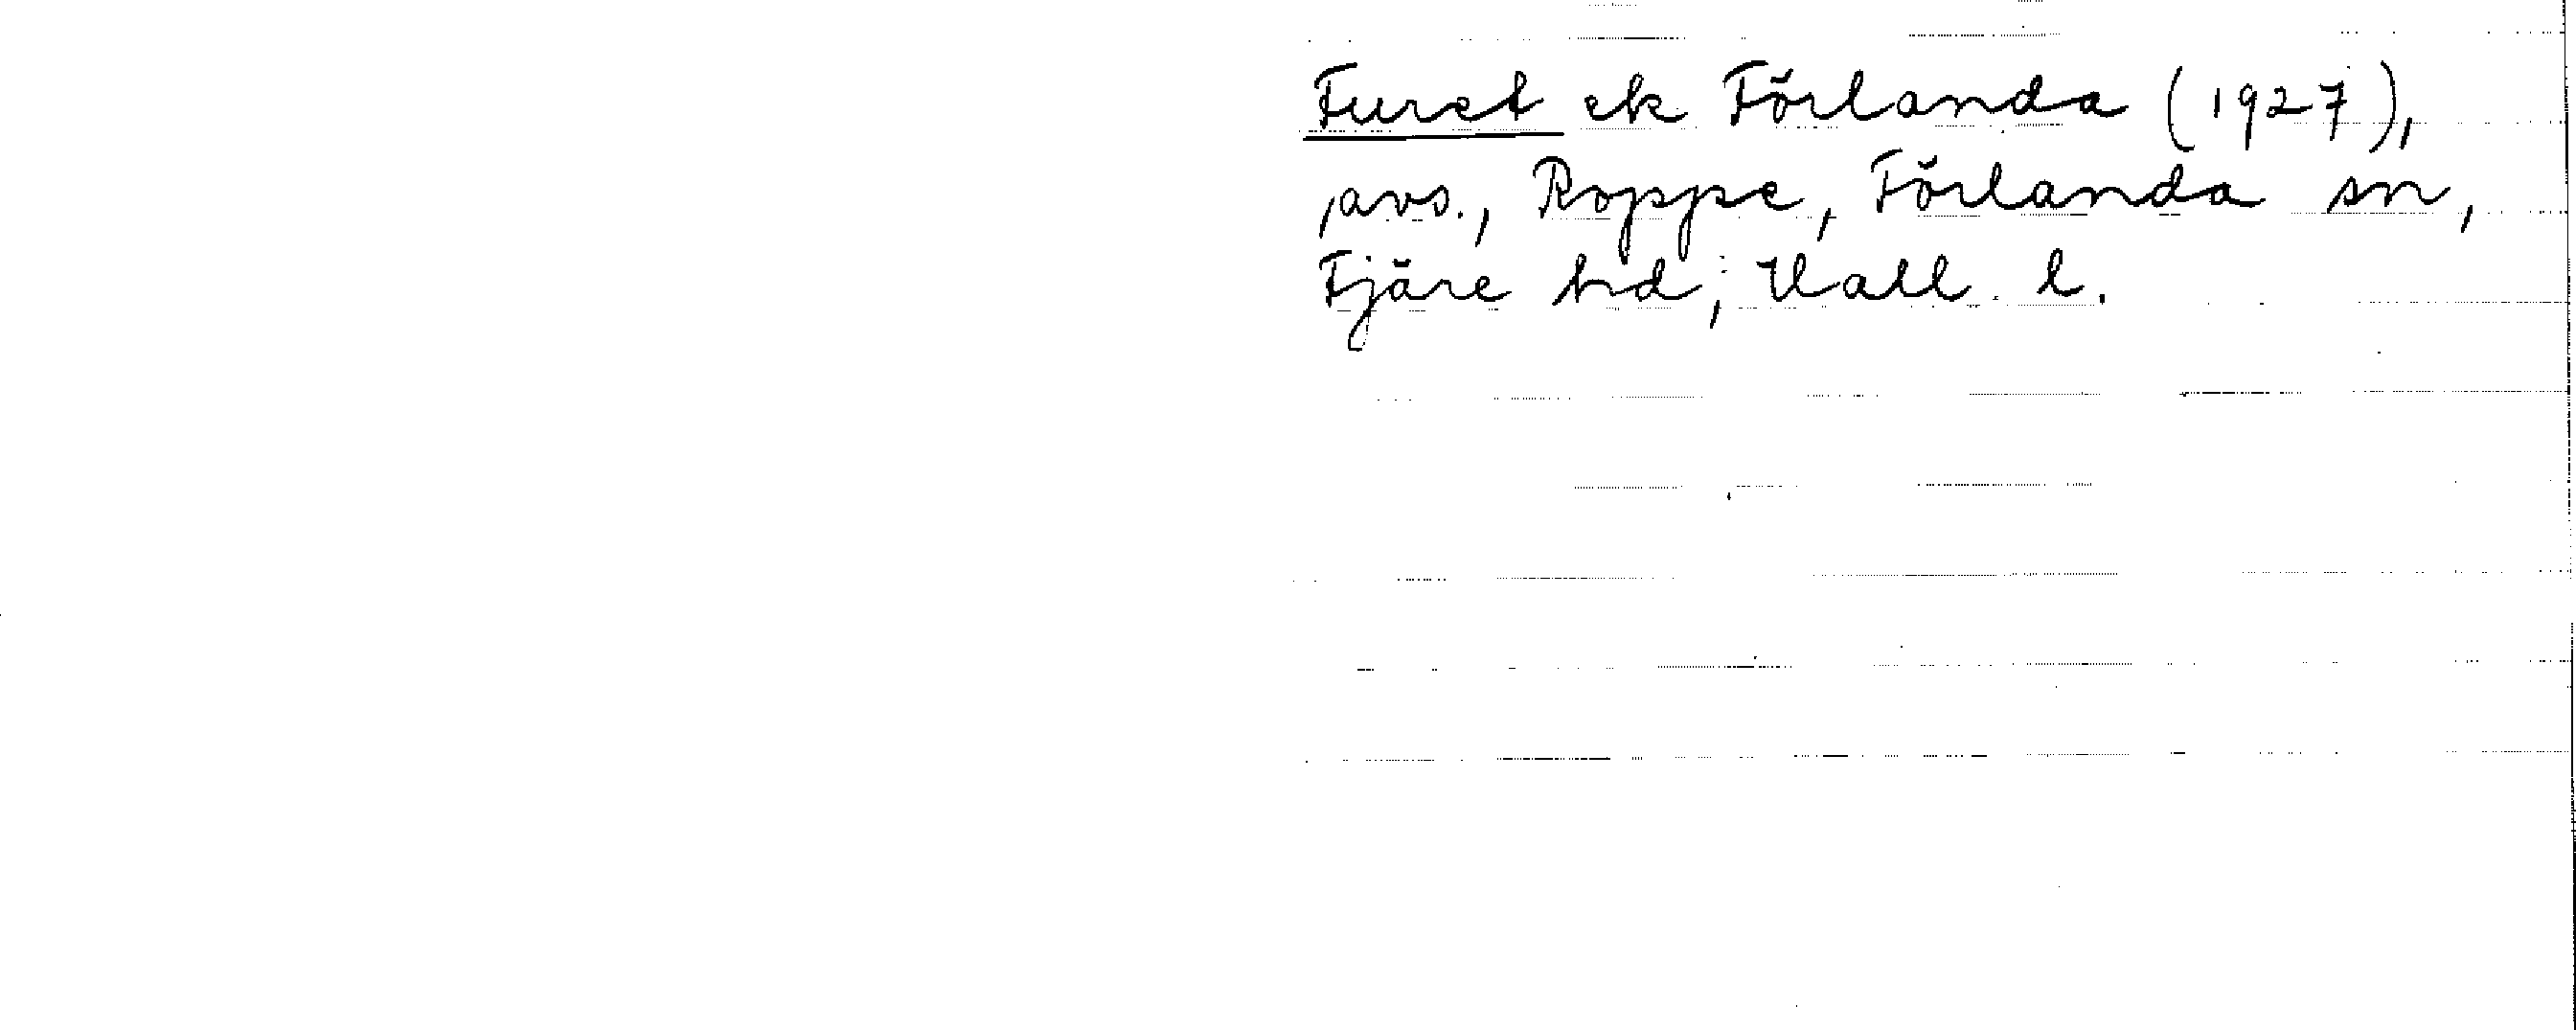 Furet ek Förlanda (1927),
avs., Roppe, Förlanda sn,
Fjäre hd, Hall. l.